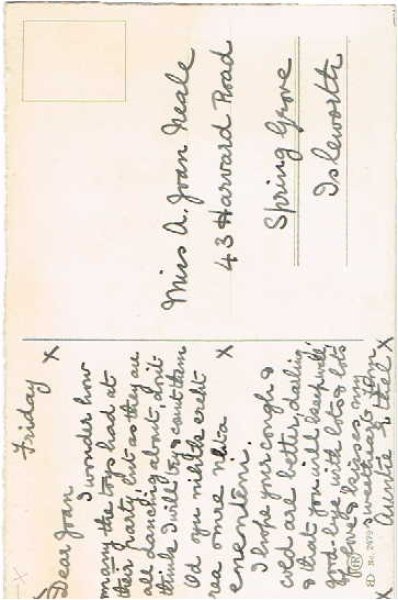 Friday
X
Dear Joan
I wonder how
many the toys had at
their party, but as they are
all dancing about, don't
think I will try & count them
X
I hope your cough &
cold are better, darling
& that you will keep well
good-bye with lots & lots
of love & kisses, my
sweetheart from
X Auntie Ethel X
Miss A. Joan Neale
43 Harvard Road
Spring Grove
Isleworth